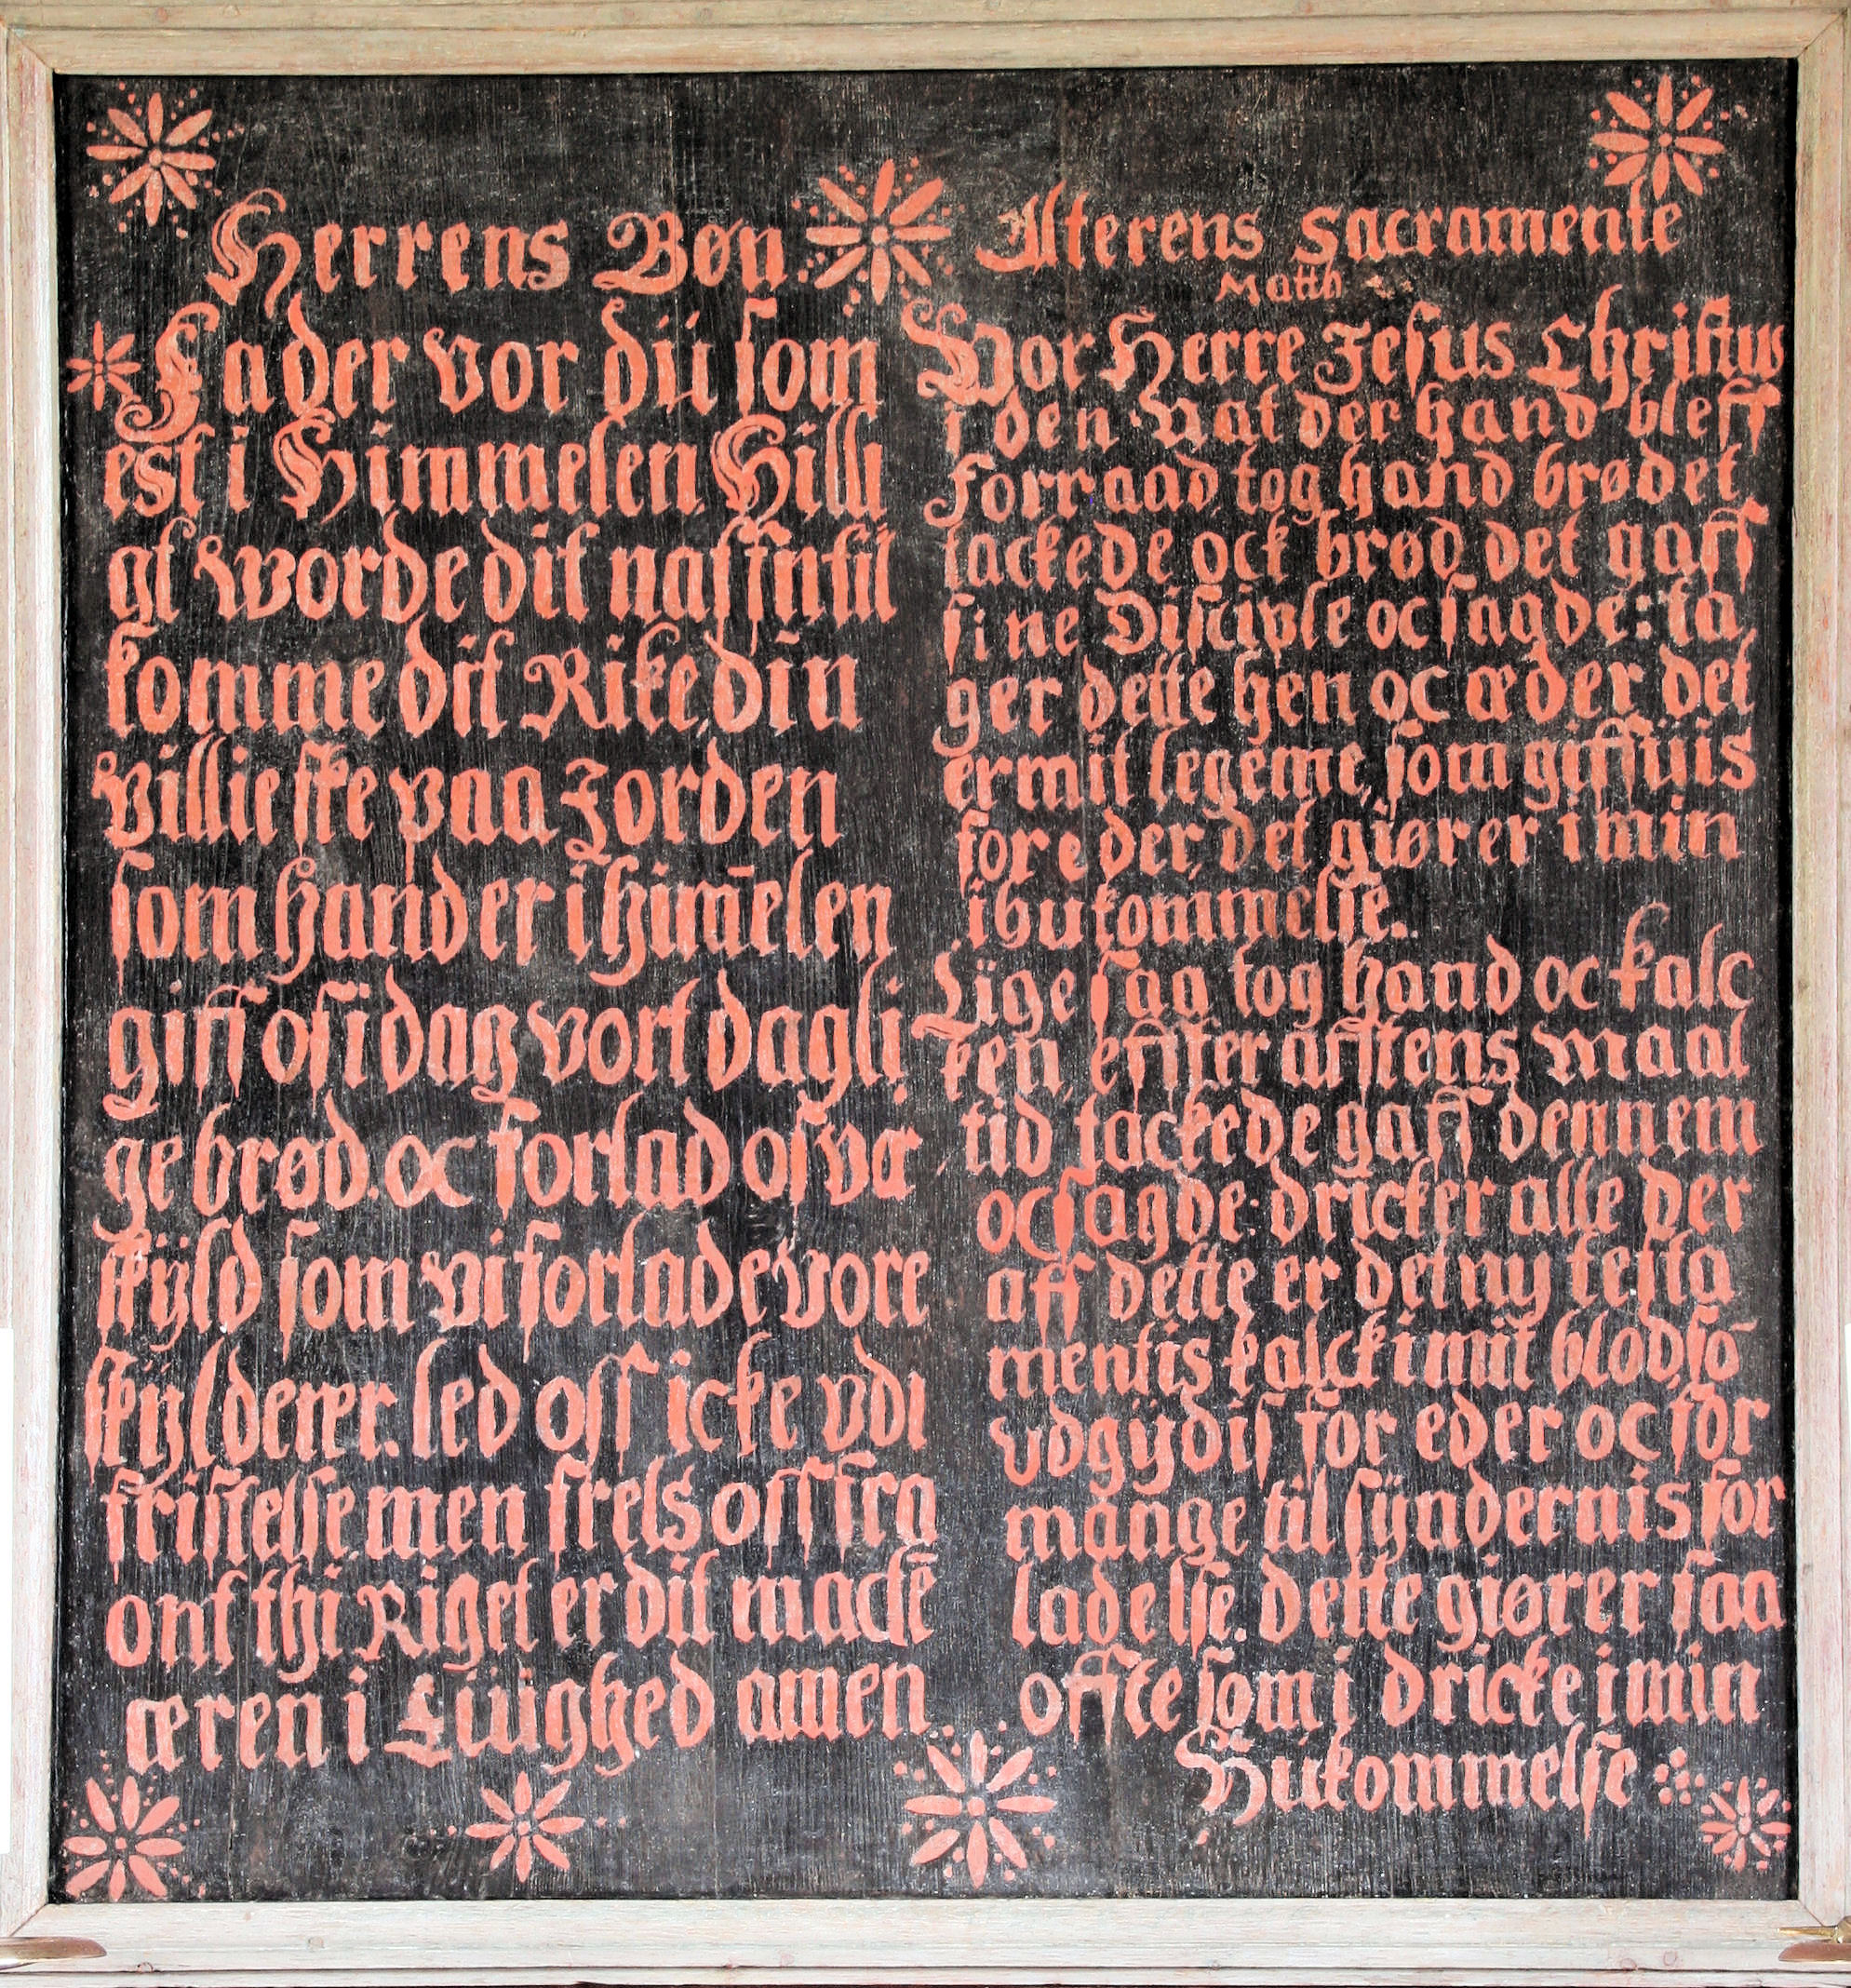 Herrens Bøn
Fader vor dü som
est i Himmelen Hilli
gt worde dit naffn til
komme dit Rike, din
villie ske paa Jorden
som hand er i himēlen
giff os i dag vort dagli
ge brød. oc forlad os vor
skÿld som vi forlade vore
skÿlderer. led oss icke vdi
fristelse men frels oss fra
ont thi Riget er dit mackē
æren i Lüüghed amen.
Alterens sacramente
Matth
Vor Herre Jesus Christus
i den Nat der hand bleff
forraad, tog hand brødet
tackede ock brød det gaff
sine Disciple oc sagde: ta,
ger dette hen oc æder det
er mit legeme, som giffuis
for eder, det giører i min
ihukommelse.
Lige saa tog hand oc kalc
ken, effter afftens maal
tid tackede gaff dennem
oc sagde: dricker alle der
aff dette er det ny testa
mentis kalck i mit blod, sō
vdgÿdis for eder oc for
mange til sÿndernis for
ladelse. dette giører saa
offte som i dricke i min
Hukommelse